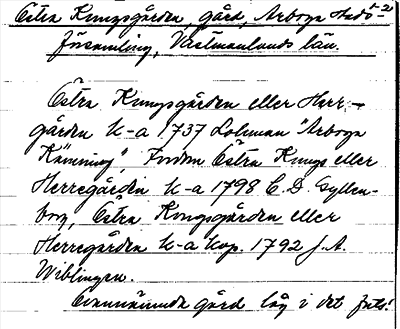 Östra Kungsgården, gård, Arboga Stads-
församling, Västmanlands län.
Östra Kungsgården eller Herr-
gården k-a 1737 Lohman "Arboga
Känning", Fordom Östra Kungs eller
Herregården k-a 1798 C. D. Gyllen-
borg, Östra Kongsgården eller
Herregården k-a kop. 1792 J. A.
Wiblingen.
gård låg i det